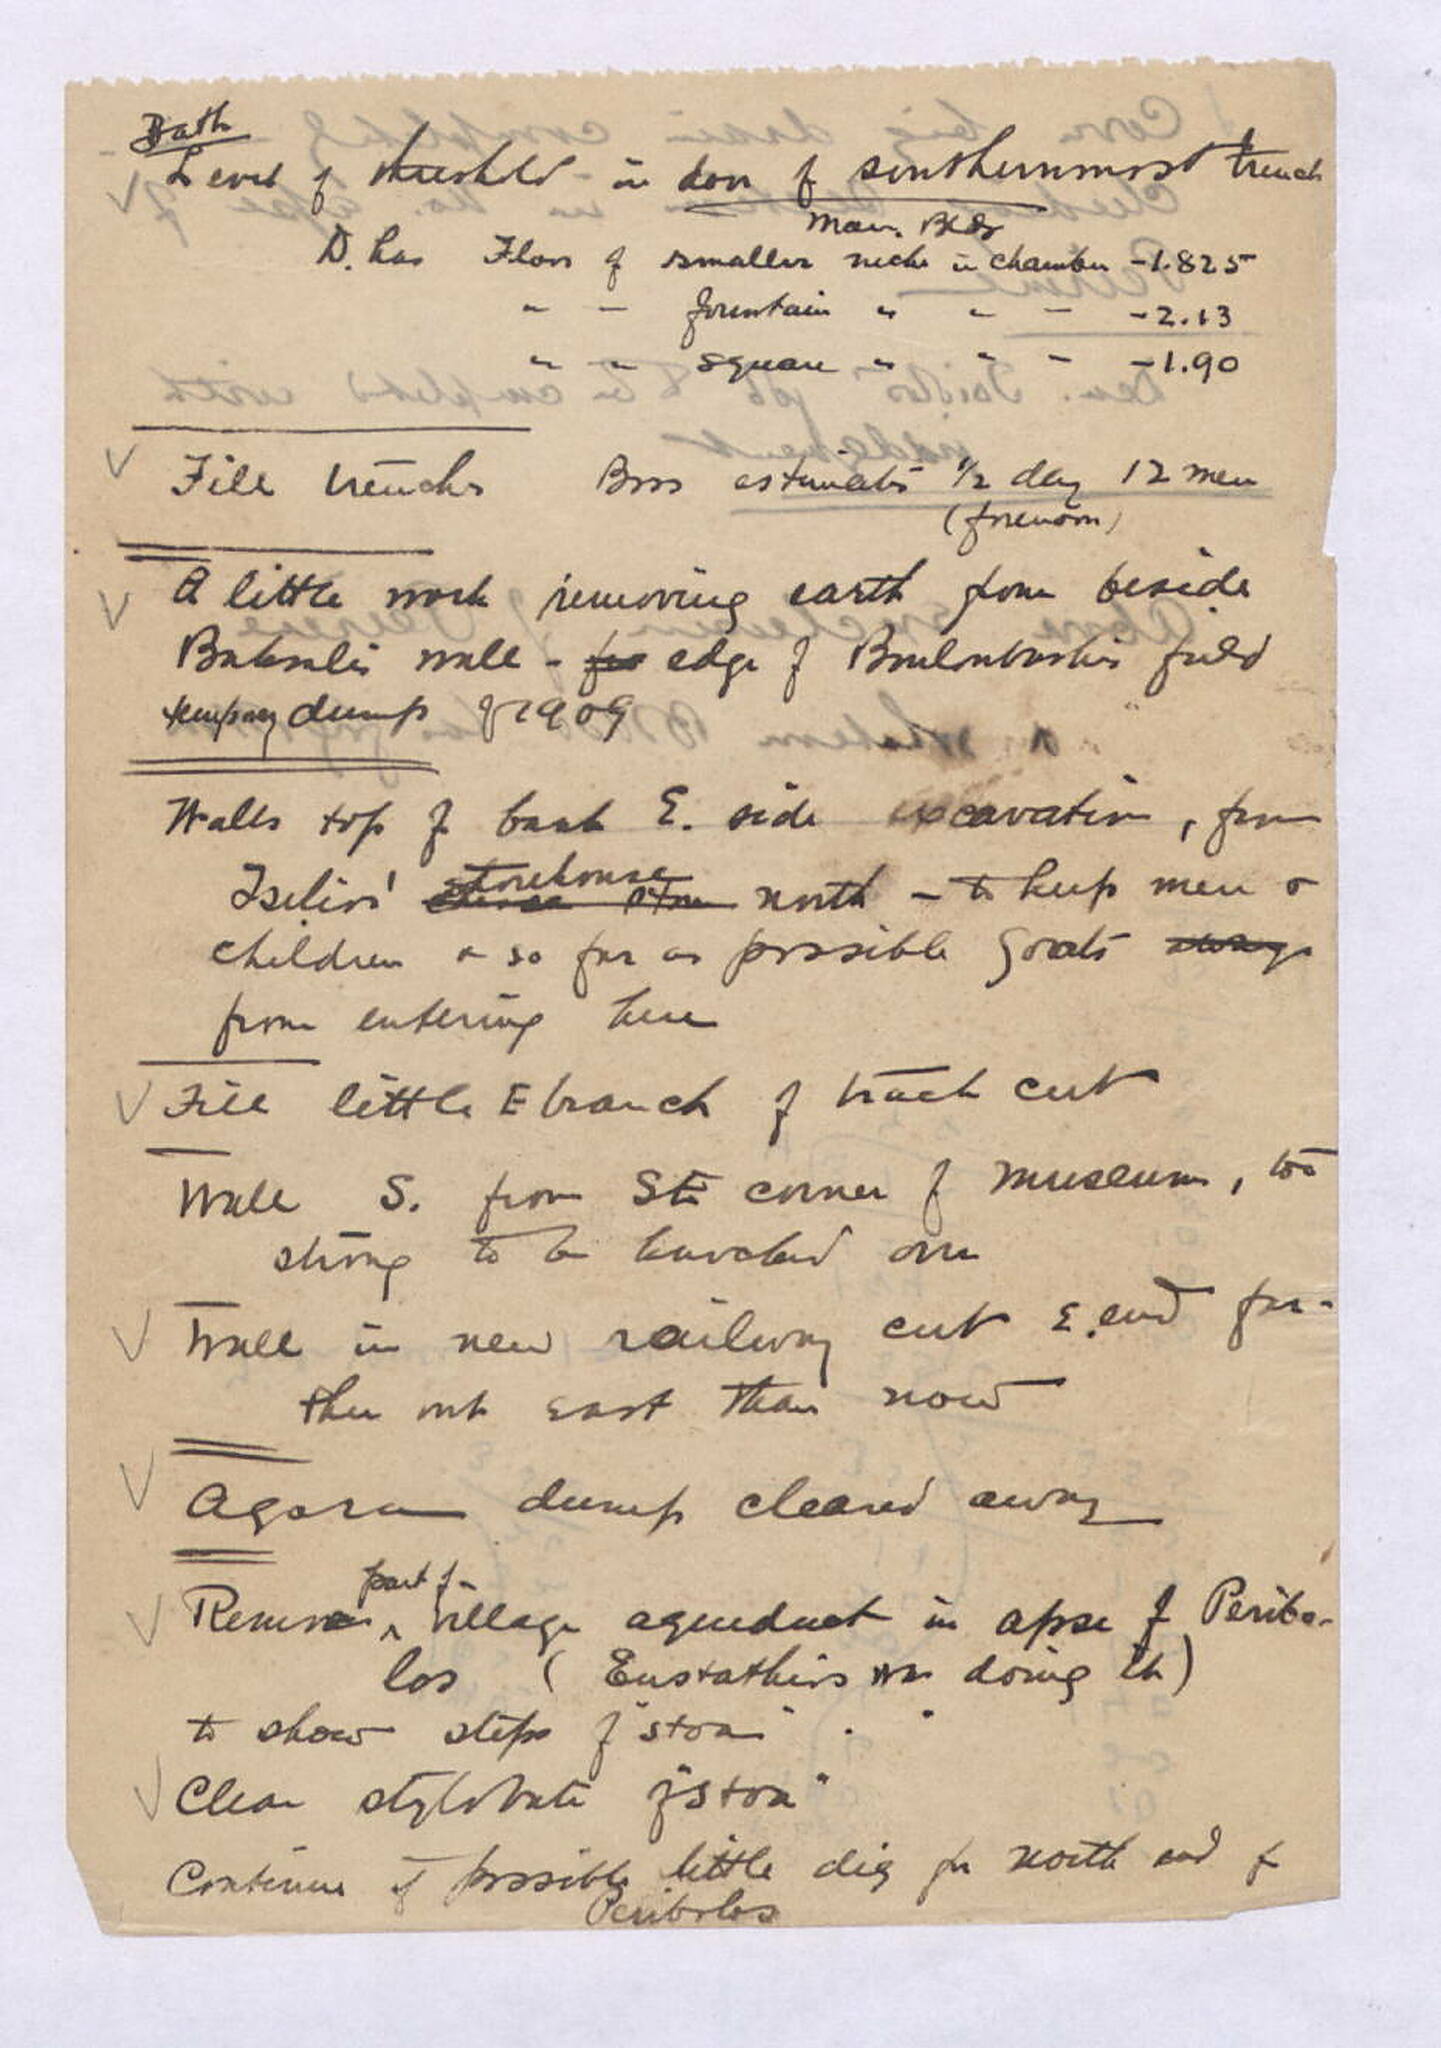 Bath
Level of threshold in door of southernmost trench
Main Bldg
D. has Floor of smaller niche in chamber -1.825
" " fountain " " " -2.13
" " square " " " -1.90
Fill trenches Boss estimates 1/2 day 12 men
(forenoon)
A little work removing earth from beside
wall - for edge of field
temporary dump of 1909
Walls top of bank E. side excavation, from
storehouse
north - to keep men &
children & so far as possible goats away
from entering here
Fill little E branch of track cut
Wall S. from SE corner of museum, too
strong to be knocked over
Wall in new railway cut E. end far-
ther out east than now
Agora dump cleared away
part of
Remove ^ village aqueduct in apse of Peribo-
los (Eustathios was doing it)
to show steps of "stoa"
Clear stylobate of "stoa"
Continue if possible little dig for north end of
Peribolos